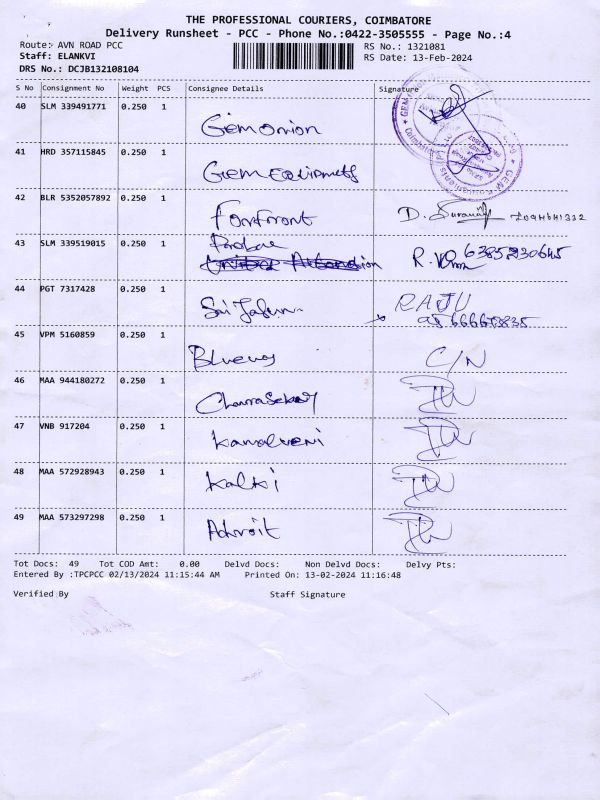 THE PROFESSIONAL COURIERS, COIMBATORE
Delivery Runsheet - PCC - Phone No.:0422-3505555 - Page No.:4
Route: AVN ROAD PCC
RS No.: 1321081
Staff: ELANKVI
RS Date: 13-Feb-2024
DRS No.: DCJB132108104
S No Consignment No Weight PCS Consignee Details Signature
40 SLM 339491771 0.250 1 Gem onion
41 HRD 357115845 0.250 1 Gem Equipments
42 BLR 5352057892 0.250 1 Forefront D.
43 SLM 339519015 0.250 1 R.
44 PGT 7317428 0.250 1 Sai RAJU
45 VPM 5160859 0.250 1 C/N
46 MAA 944180272 0.250 1
47 VNB 917204 0.250 1 Kamalveni
48 MAA 572928943 0.250 1 Kalki
49 MAA 573297298 0.250 1 Adroit
Tot Docs: 49 Tot COD Amt: 0.00 Delvd Docs: Non Delvd Docs: Delvy Pts:
Entered By :TPCPCC 02/13/2024 11:15:44 AM Printed On: 13-02-2024 11:16:48
Verified By Staff Signature